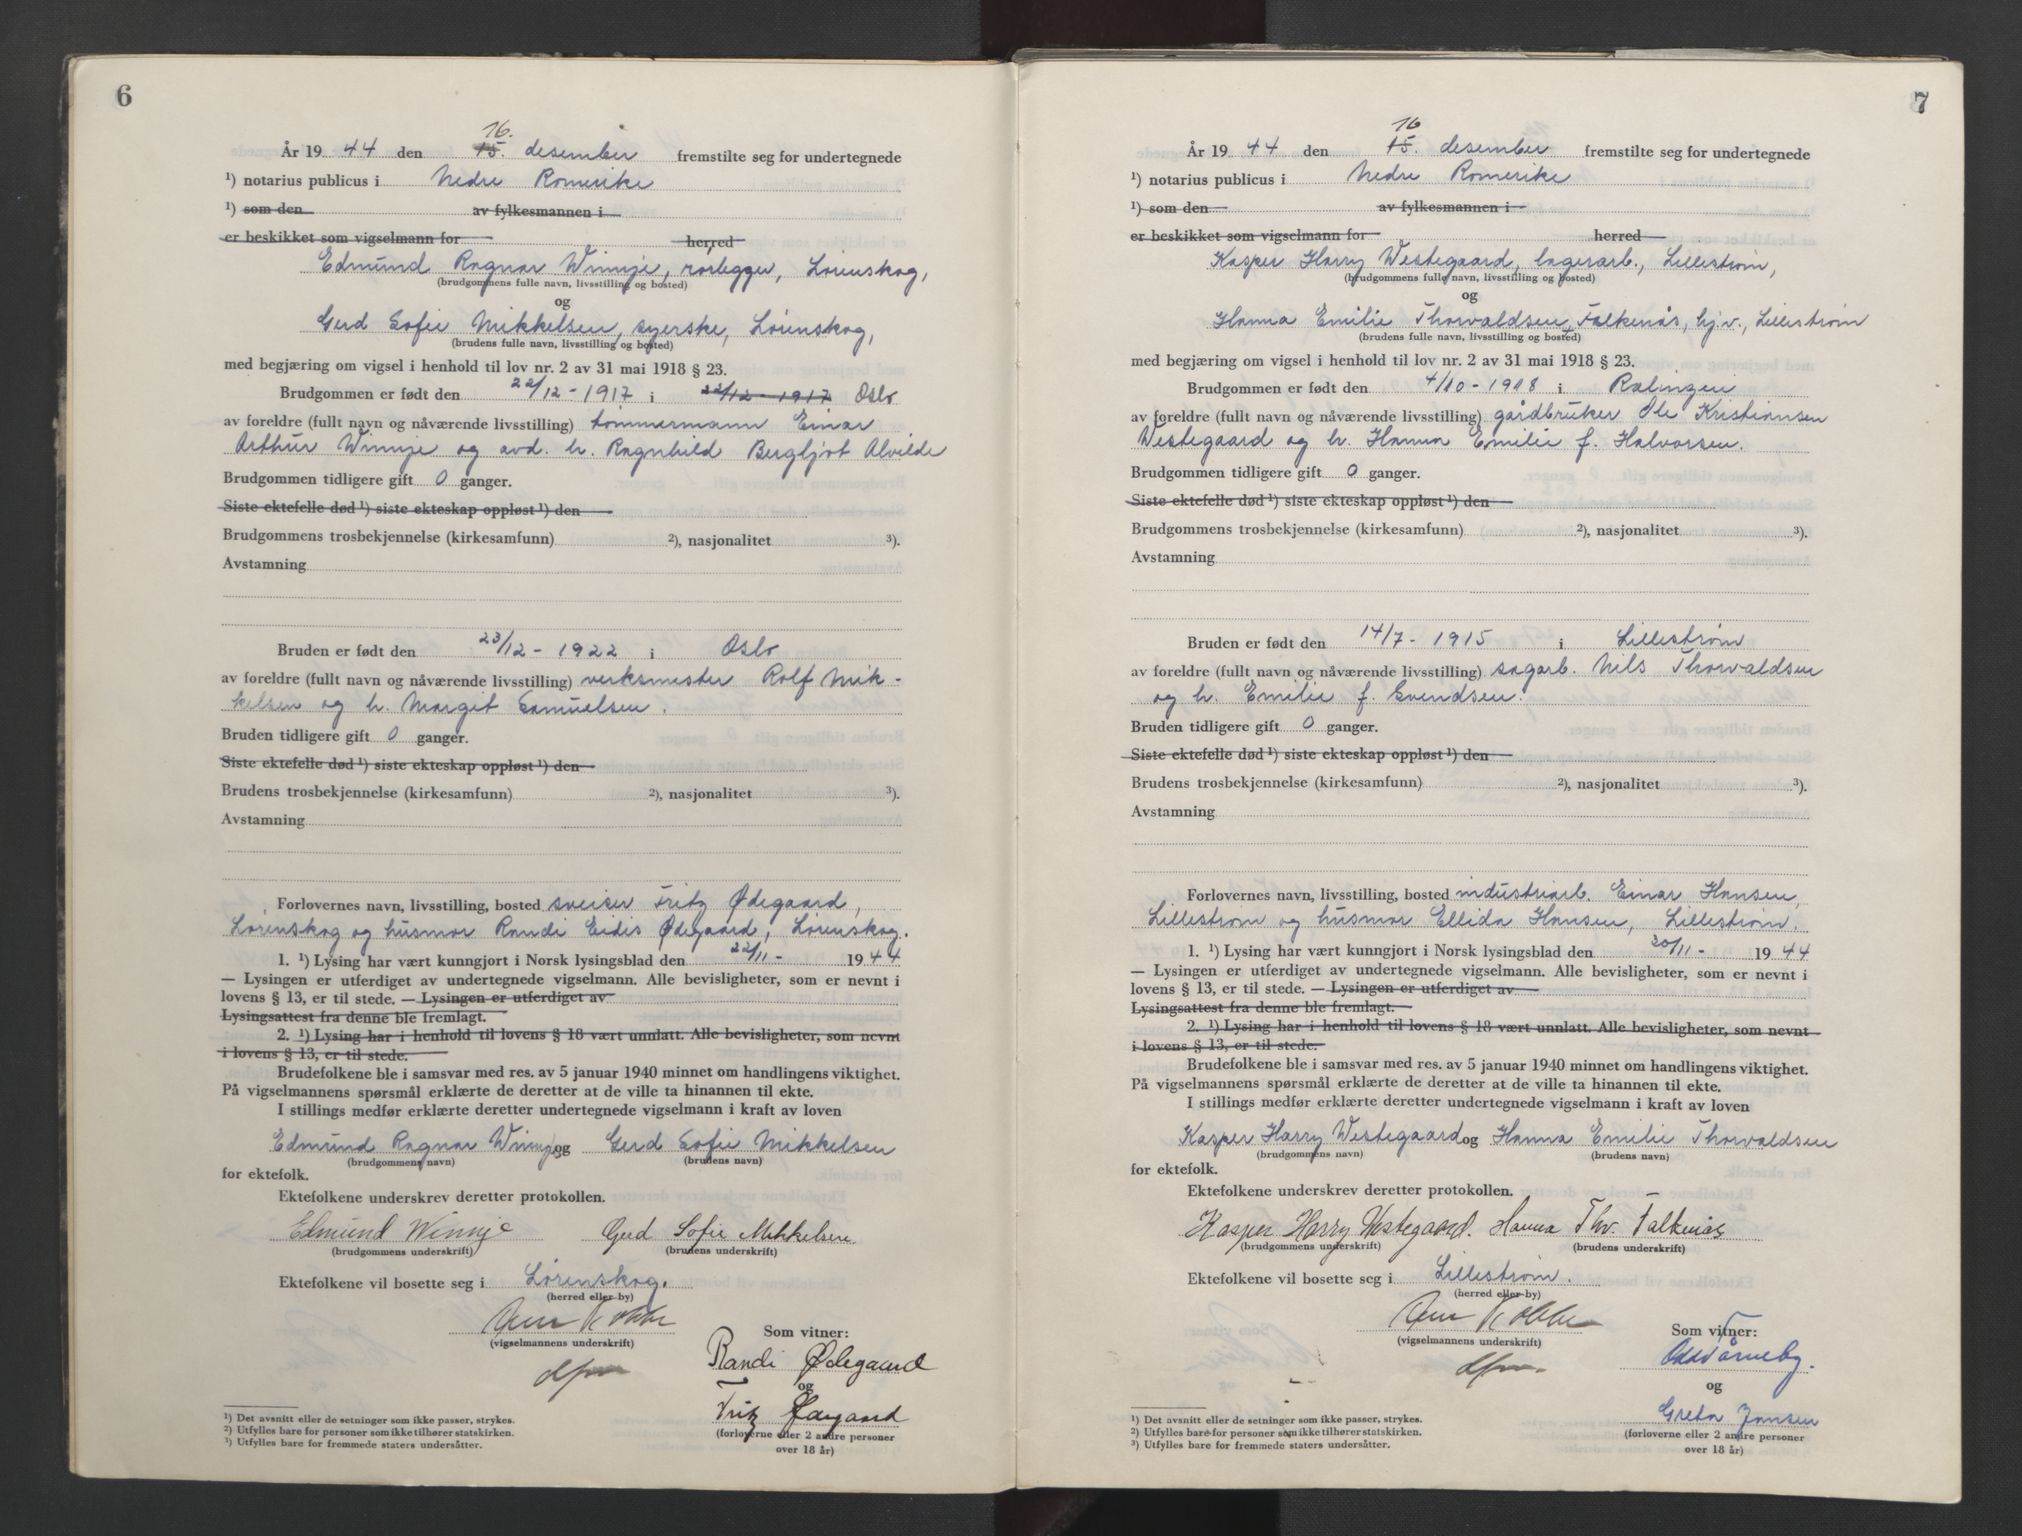 6
16.
År 19 44 den 15. desember fremstilte seg for undertegnede
¹) notarius publicus i Nedre Romerike
¹) som den av fylkesmannen i
er beskikket som vigselmann for herred
Edmund Ragnar Winnje, rørlegger, Lørenskog,
(brudgommens fulle navn, livsstilling og bosted)
og
Gerd Sofie Mikkelsen, syerske, Lørenskog,
(brudens fulle navn, livsstilling og bosted)
med begjæring om vigsel i henhold til lov nr. 2 av 31 mai 1918 § 23.
Brudgommen er født den 22/12 - 1917 i 22/12 - 1917 Oslo
av foreldre (fullt navn og nåværende livsstilling) tømmermann Einar
Arthur Winnje og avd. h. Ragnhild Bergljot Alvilde
Brudgommen tidligere gift 0 ganger.
Siste ektefelle død ¹) siste ekteskap oppløst ¹) den
Brudgommens trosbekjennelse (kirkesamfunn) ²), nasjonalitet ³).
Avstamning
Bruden er født den 23/12 - 1922 i Oslo
av foreldre (fullt navn og nåværende livsstilling) verksmester Rolf Mik-
kelsen og h. Margit Samuelsen.
Bruden tidligere gift 0 ganger.
Siste ektefelle død ¹) siste ekteskap oppløst ¹) den
Brudens trosbekjennelse (kirkesamfunn) ²), nasjonalitet ³).
Avstamning
Forlovernes navn, livsstilling, bosted sveiser Fritz Ødegaard,
Lørenskog og husmor Randi Eidis Ødegaard, Lørenskog.
1. ¹) Lysing har vært kunngjort i Norsk lysingsblad den 22/11 - 19 44
— Lysingen er utferdiget av undertegnede vigselmann. Alle bevisligheter, som er nevnt i
lovens § 13, er til stede. — Lysingen er utferdiget av
Lysingsattest fra denne ble fremlagt.
2. ¹) Lysing har i henhold til lovens § 18 vært unnlatt. Alle bevisligheter, som nevnt
i lovens § 13, er til stede.
Brudefolkene ble i samsvar med res. av 5 januar 1940 minnet om handlingens viktighet.
På vigselmannens spørsmål erklærte de deretter at de ville ta hinannen til ekte.
I stillings medfør erklærte deretter undertegnede vigselmann i kraft av loven
Edmund Ragnar Winnje og Gerd Sofie Mikkelsen
(brudgommens navn) (brudens navn)
for ektefolk.
Ektefolkene underskrev deretter protokollen.
Edmund Winnje Gerd Sofie Mikkelsen.
(brudgommens underskrift) (brudens underskrift)
Ektefolkene vil bosette seg i Lørenskog.
(herred eller by)
(vigselmannens underskrift)
Som vitner:
Randi Ødegaard
og
Fritz Ødegaard
(forloverne eller 2 andre personer
over 18 år)
¹) Det avsnitt eller de setninger som ikke passer, strykes.
²) Utfylles bare for personer som ikke tilhører statskirken.
³) Utfylles bare for fremmede staters undersåtter.
7
16
År 19 44 den 15. desember fremstilte seg for undertegnede
¹) notarius publicus i Nedre Romerike
¹) som den av fylkesmannen i
er beskikket som vigselmann for herred
Kasper Harry Westegaard, lagerarb., Lillestrøm,
(brudgommens fulle navn, livsstilling og bosted)
og
Hanna Emilie Thorvaldsen Falkenås, hj.v., Lillestrøm
(brudens fulle navn, livsstilling og bosted)
med begjæring om vigsel i henhold til lov nr. 2 av 31 mai 1918 § 23.
Brudgommen er født den 4/10 - 1918 i Rælingen
av foreldre (fullt navn og nåværende livsstilling) gårdbruker Ole Kristiansen
Westegaard og h. Hanna Emilie f. Halvorsen.
Brudgommen tidligere gift 0 ganger.
Siste ektefelle død ¹) siste ekteskap oppløst ¹) den
Brudgommens trosbekjennelse (kirkesamfunn) ²), nasjonalitet ³).
Avstamning
Bruden er født den 14/7 - 1915 i Lillestrøm
av foreldre (fullt navn og nåværende livsstilling) sagarb. Nils Thorvaldsen
og h. Emilie f. Evendsen.
Bruden tidligere gift 0 ganger.
Siste ektefelle død ¹) siste ekteskap oppløst ¹) den
Brudens trosbekjennelse (kirkesamfunn) ²), nasjonalitet ³).
Avstamning
Forlovernes navn, livsstilling, bosted industriarb. Einar Hansen,
Lillestrøm og husmor Ellida Hansen, Lillestrøm.
1. ¹) Lysing har vært kunngjort i Norsk lysingsblad den 30/11 - 19 44
— Lysingen er utferdiget av undertegnede vigselmann. Alle bevisligheter, som er nevnt i
lovens § 13, er til stede. — Lysingen er utferdiget av
Lysingsattest fra denne ble fremlagt.
2. ¹) Lysing har i henhold til lovens § 18 vært unnlatt. Alle bevisligheter, som nevnt
i lovens § 13, er til stede.
Brudefolkene ble i samsvar med res. av 5 januar 1940 minnet om handlingens viktighet.
På vigselmannens spørsmål erklærte de deretter at de ville ta hinannen til ekte.
I stillings medfør erklærte deretter undertegnede vigselmann i kraft av loven
Kasper Harry Westegaard og Hanna Emilie Thorvaldsen
(brudgommens navn) (brudens navn)
for ektefolk.
Ektefolkene underskrev deretter protokollen.
Kasper Harry Westegaard. Hanna Thv. Falkenås
(brudgommens underskrift) (brudens underskrift)
Ektefolkene vil bosette seg i Lillestrøm.
(herred eller by)
(vigselmannens underskrift)
Som vitner:
og
Greta Jansen
(forloverne eller 2 andre personer
over 18 år)
¹) Det avsnitt eller de setninger som ikke passer, strykes.
²) Utfylles bare for personer som ikke tilhører statskirken.
³) Utfylles bare for fremmede staters undersåtter.